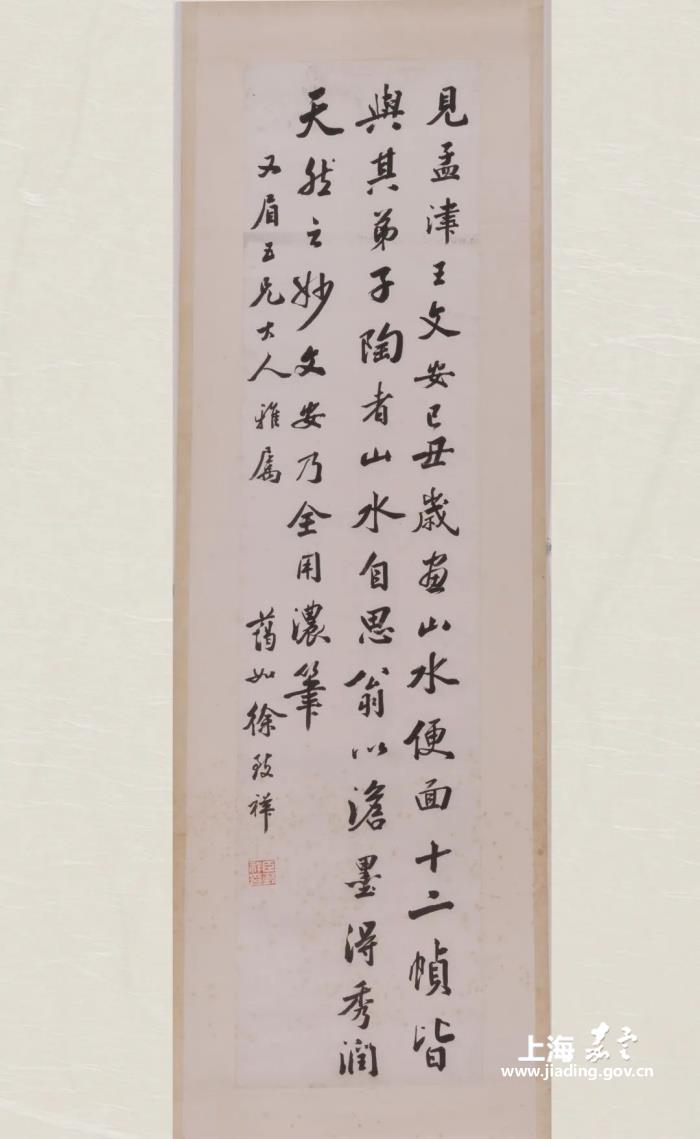 見孟津王文安已丑歲畫山水便面十二幀皆
與其弟子陶者山水自思翁以澹墨得秀潤
天然之妙文安乃全用濃筆
眉五兄大人雅屬
藹如徐致祥
上海嘉定
www.jiading.gov.cn